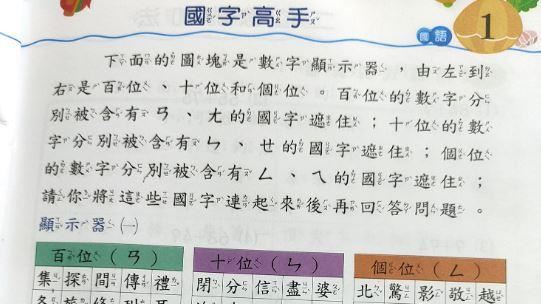 國字高手
國語
1
下面的圖塊是數字顯示器，由左到
右是百位、十位和個位。百位的數字分
別被含有ㄢ、ㄤ的國字遮住；十位的數
字分別被含有ㄣ、ㄝ的國字遮住；個位
的數字分別被含有ㄥ、ㄟ的國字遮住；
請你將這些國字連起來後再回答問題。
顯示器㈠
百位（ㄢ） 十位（ㄣ） 個位（ㄥ）
集探間傳禮 閉分信盡婆 北驚影敬越